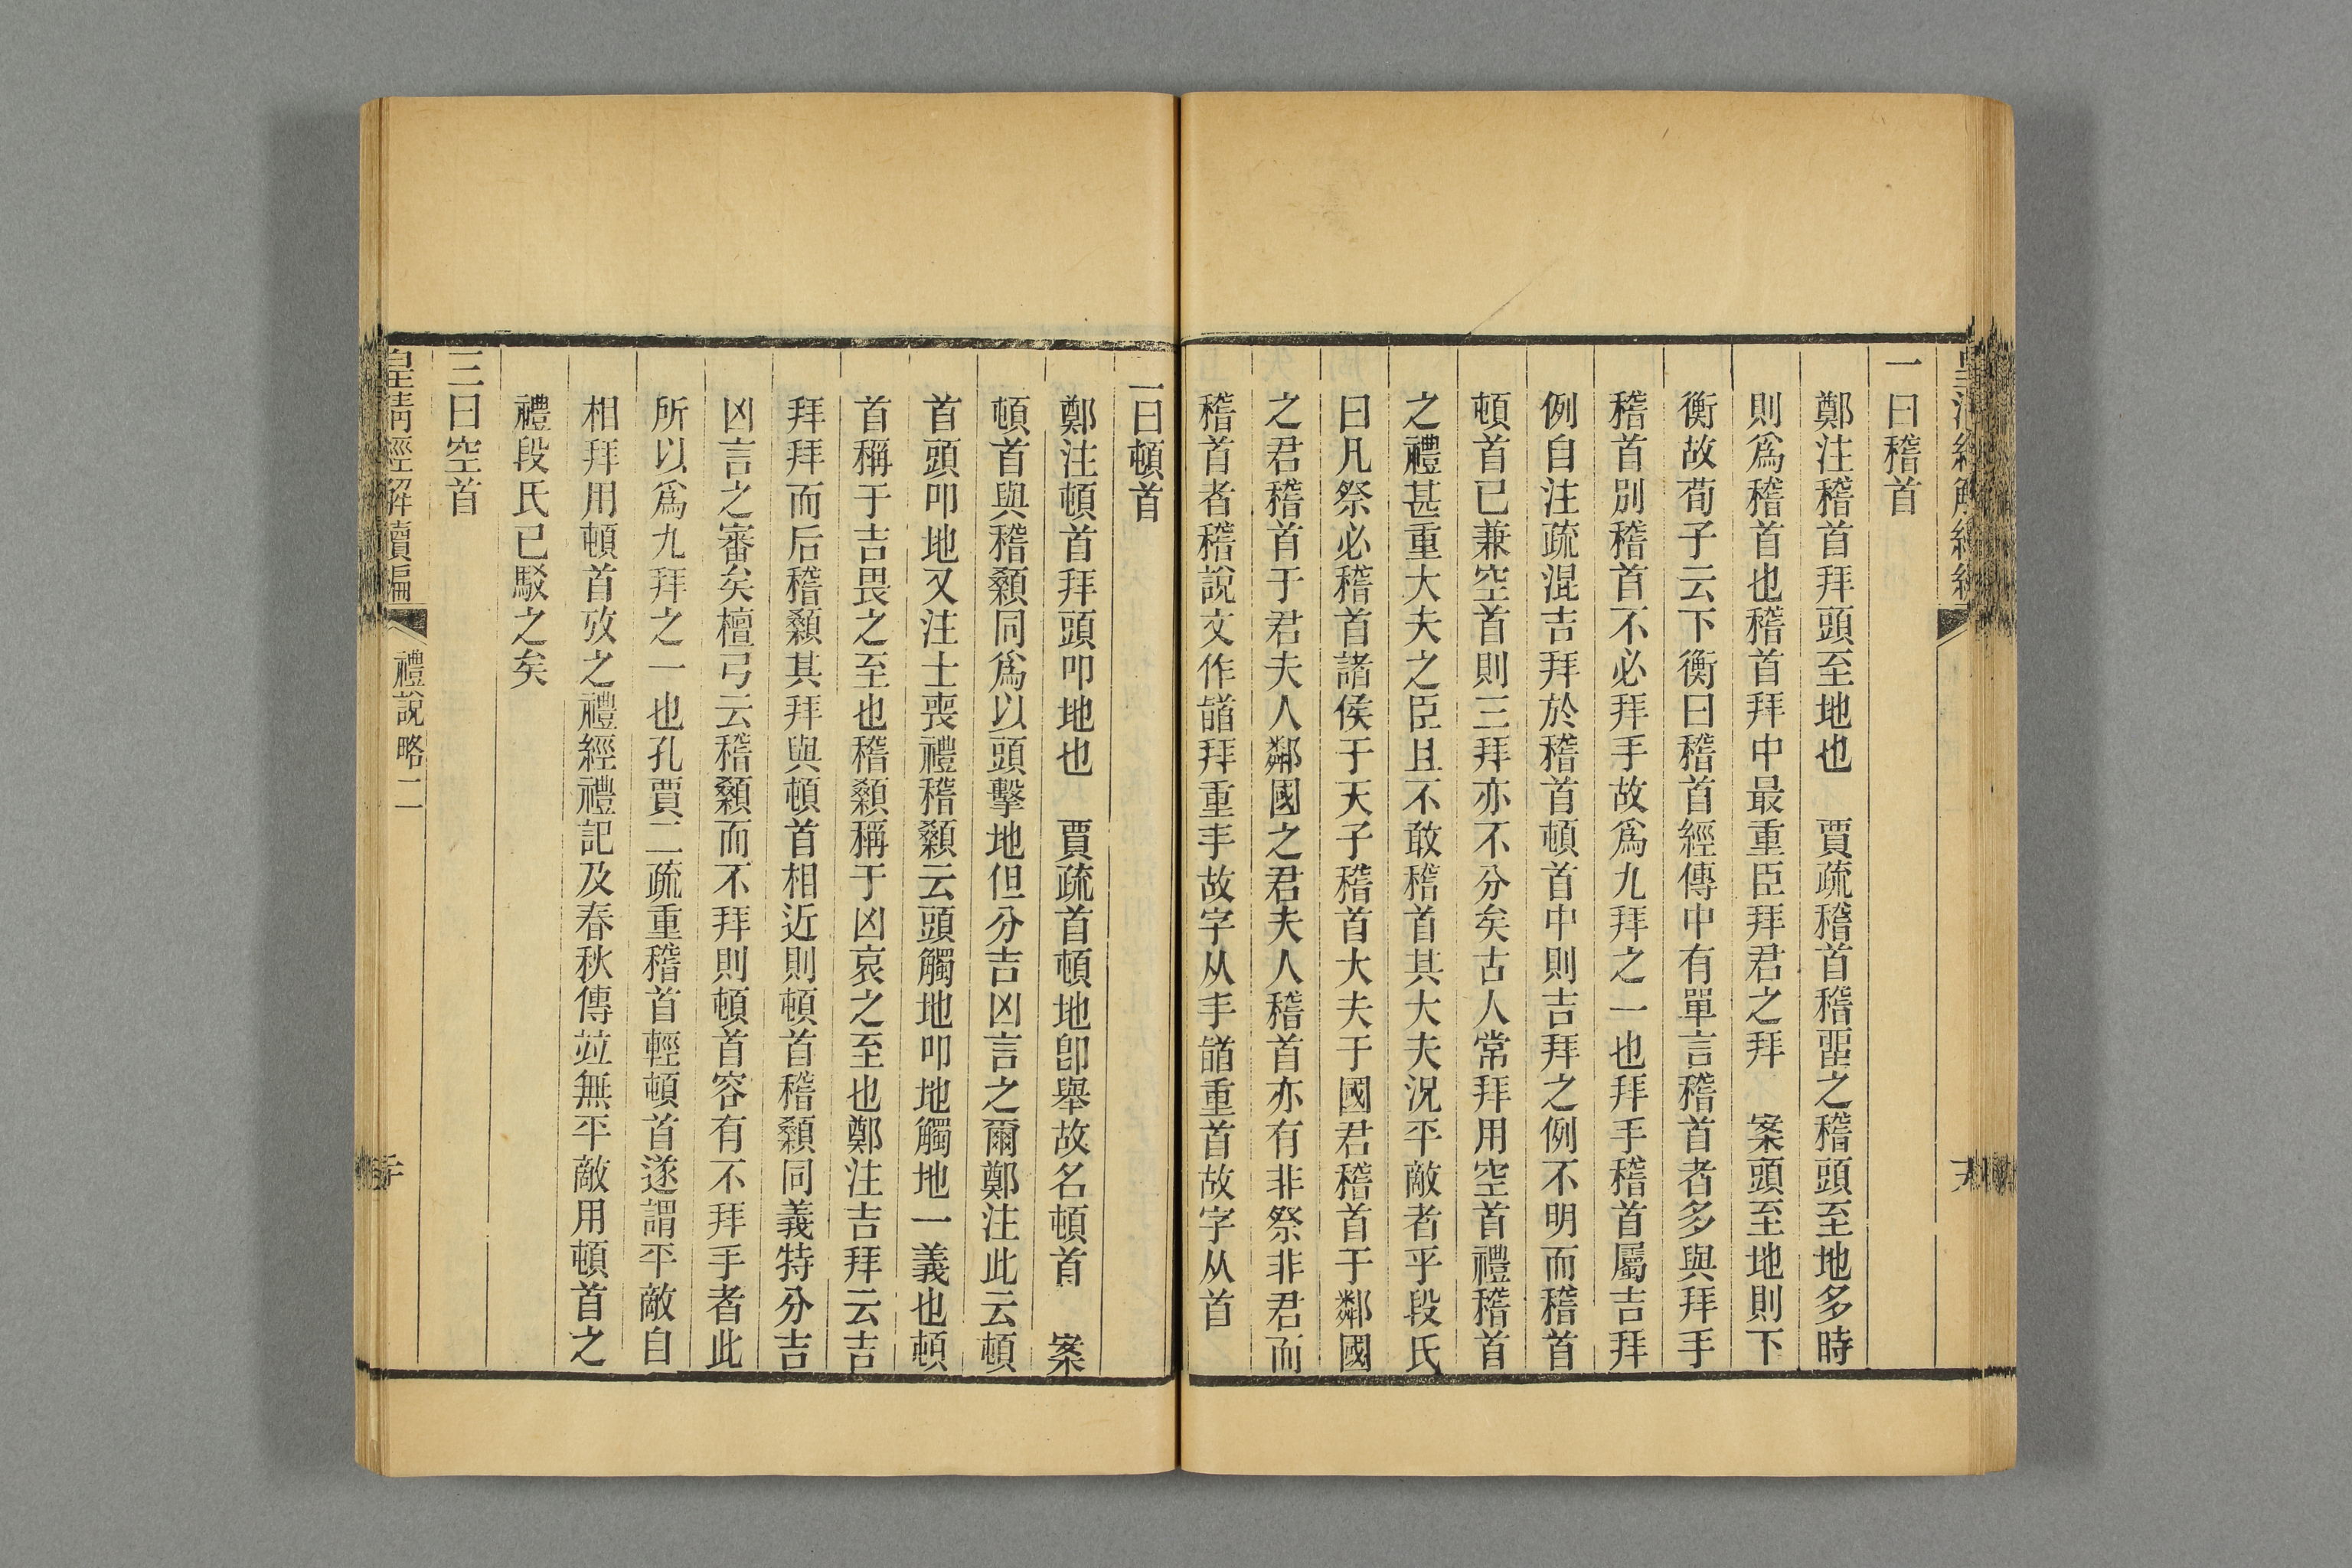 一曰稽首
鄭注稽首拜頭至地也　賈疏稽首稽畱之稽頭至地多時
則爲稽首也稽首拜中最重臣拜君之拜　案頭至地則下
衡故荀子云下衡曰稽首經傳中有單言稽首者多與拜手
稽首別稽首不必拜手故爲九拜之一也拜手稽首屬吉拜
例自注疏混吉拜於稽首頓首中則吉拜之例不明而稽首
頓首已兼空首則三拜亦不分矣古人常拜用空首禮稽首
之禮甚重大夫之臣且不敢稽首其大夫況平敵者乎段氏
曰凡祭必稽首諸侯于天子稽首大夫于國君稽首于鄰國
之君稽首于君夫人鄰國之君夫人稽首亦有非祭非君而
稽首者稽說文作䭫拜重手故字从手䭫重首故字从首
二曰頓首
鄭注頓首拜頭叩地也　賈疏首頓地卽舉故名頓首　案
頓首與稽顙同爲以頭擊地但分吉凶言之爾鄭注此云頓
首頭叩地又注士喪禮稽顙云頭觸地叩地觸地一義也頓
首稱于吉畏之至也稽顙稱于凶哀之至也鄭注吉拜云吉
拜拜而后稽顙其拜與頓首相近則頓首稽顙同義特分吉
凶言之審矣檀弓云稽顙而不拜則頓首容有不拜手者此
所以爲九拜之一也孔賈二疏重稽首輕頓首遂謂平敵自
相拜用頓首攷之禮經禮記及春秋傳竝無平敵用頓首之
禮段氏已駁之矣
三曰空首
皇清經解續編
禮說略二